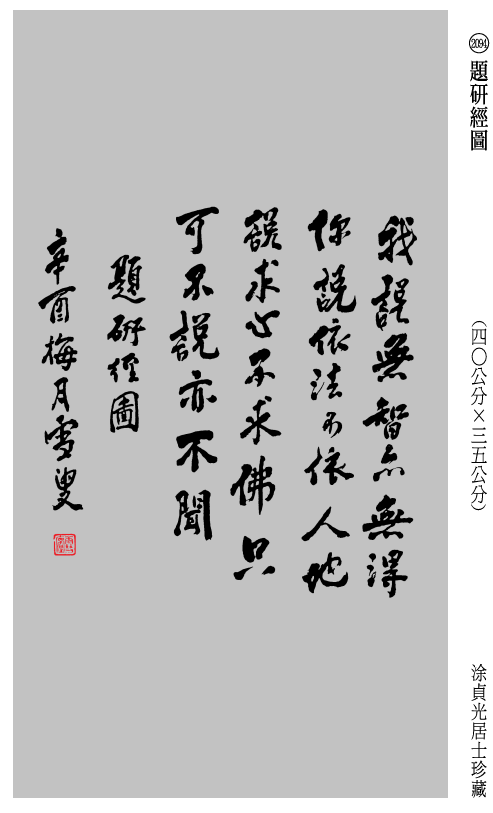 2094 題研經圖
(四〇公分×三五公分)
涂貞光居士珍藏
我說無智亦無得
你說依法不依人他
說求心不求佛只
可不說亦不聞
題研經圖
辛酉梅月雪叟